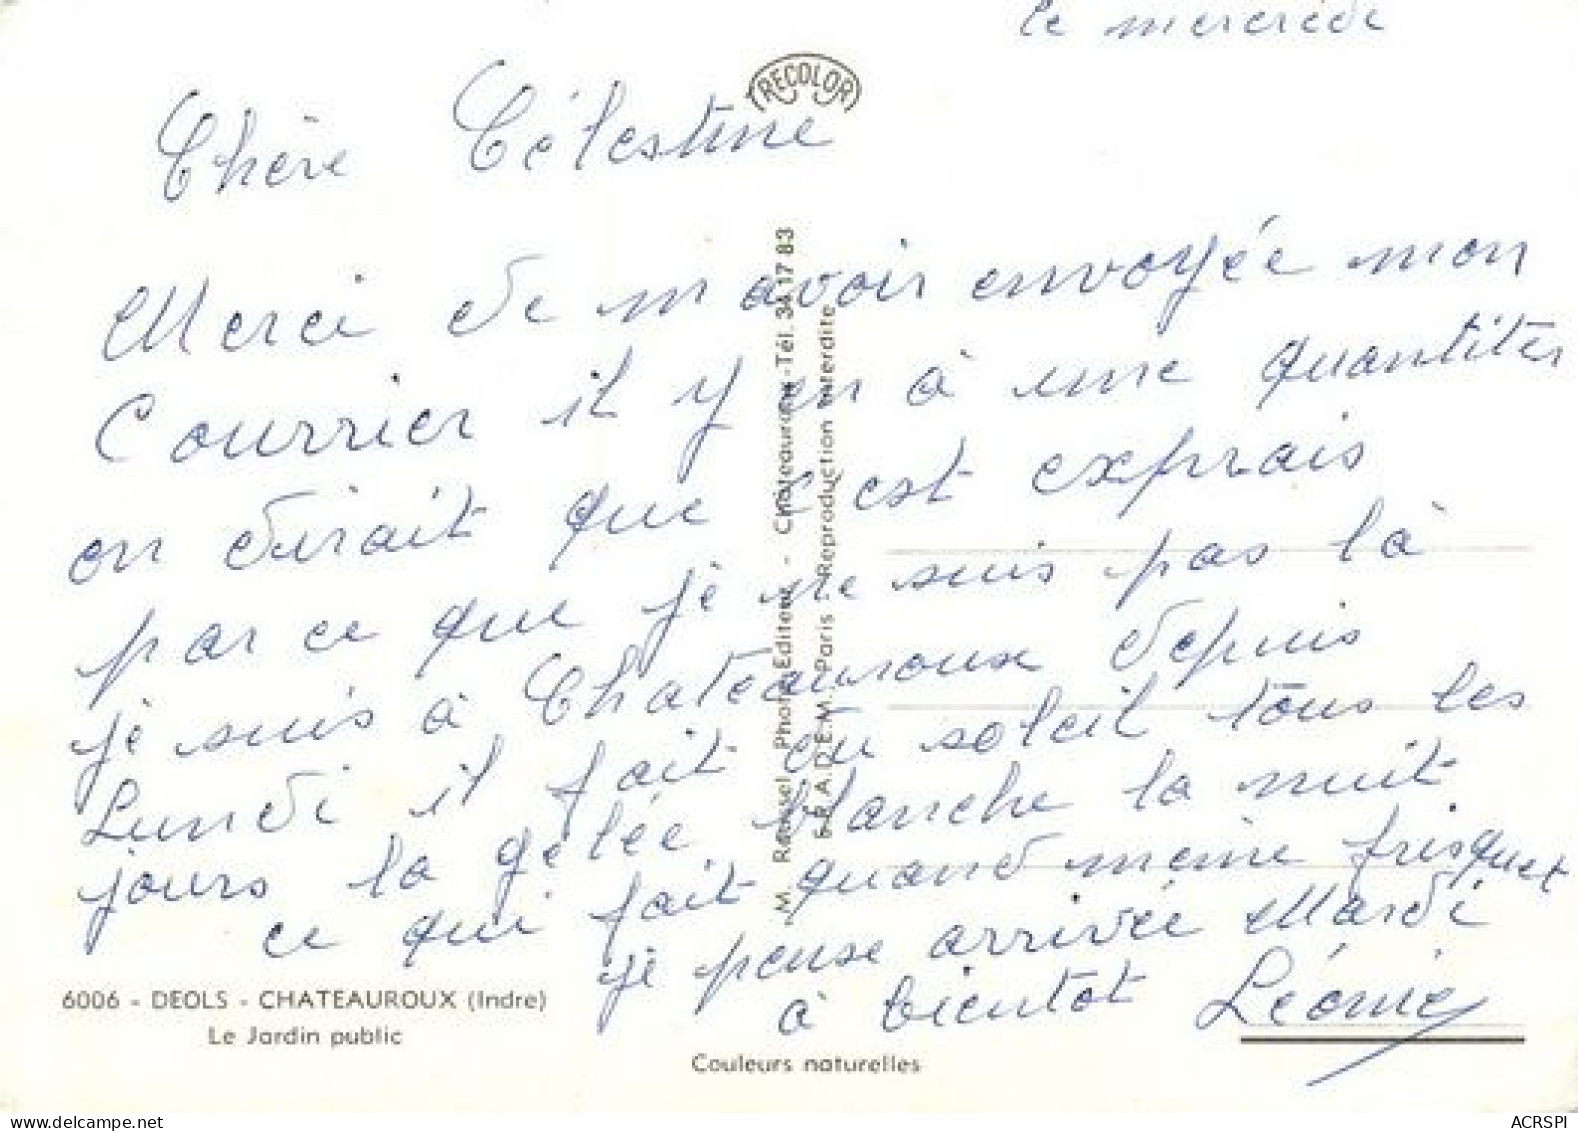 le mercredi
TRECOLOR
Chère Célestine
Merci de m avoir envoyée mon
Courrier il y en à une quantités
on dirait que c'est exprais
par ce que je ne suis pas là
je suis à Chateauroux depuis
Lundi il fait du soleil tous les
jours la gelée blanche la nuit
ce qui fait quand meme frisquet
je pense arrivée Mardi
à bientot Léonie
M. Photo Editeur - Châteauroux - Tél. 34 17 83
S.R.A.D.E.M. Paris - Reproduction interdite
6006 - DEOLS - CHATEAUROUX (Indre)
Le Jardin public
Couleurs naturelles
ACRSPI